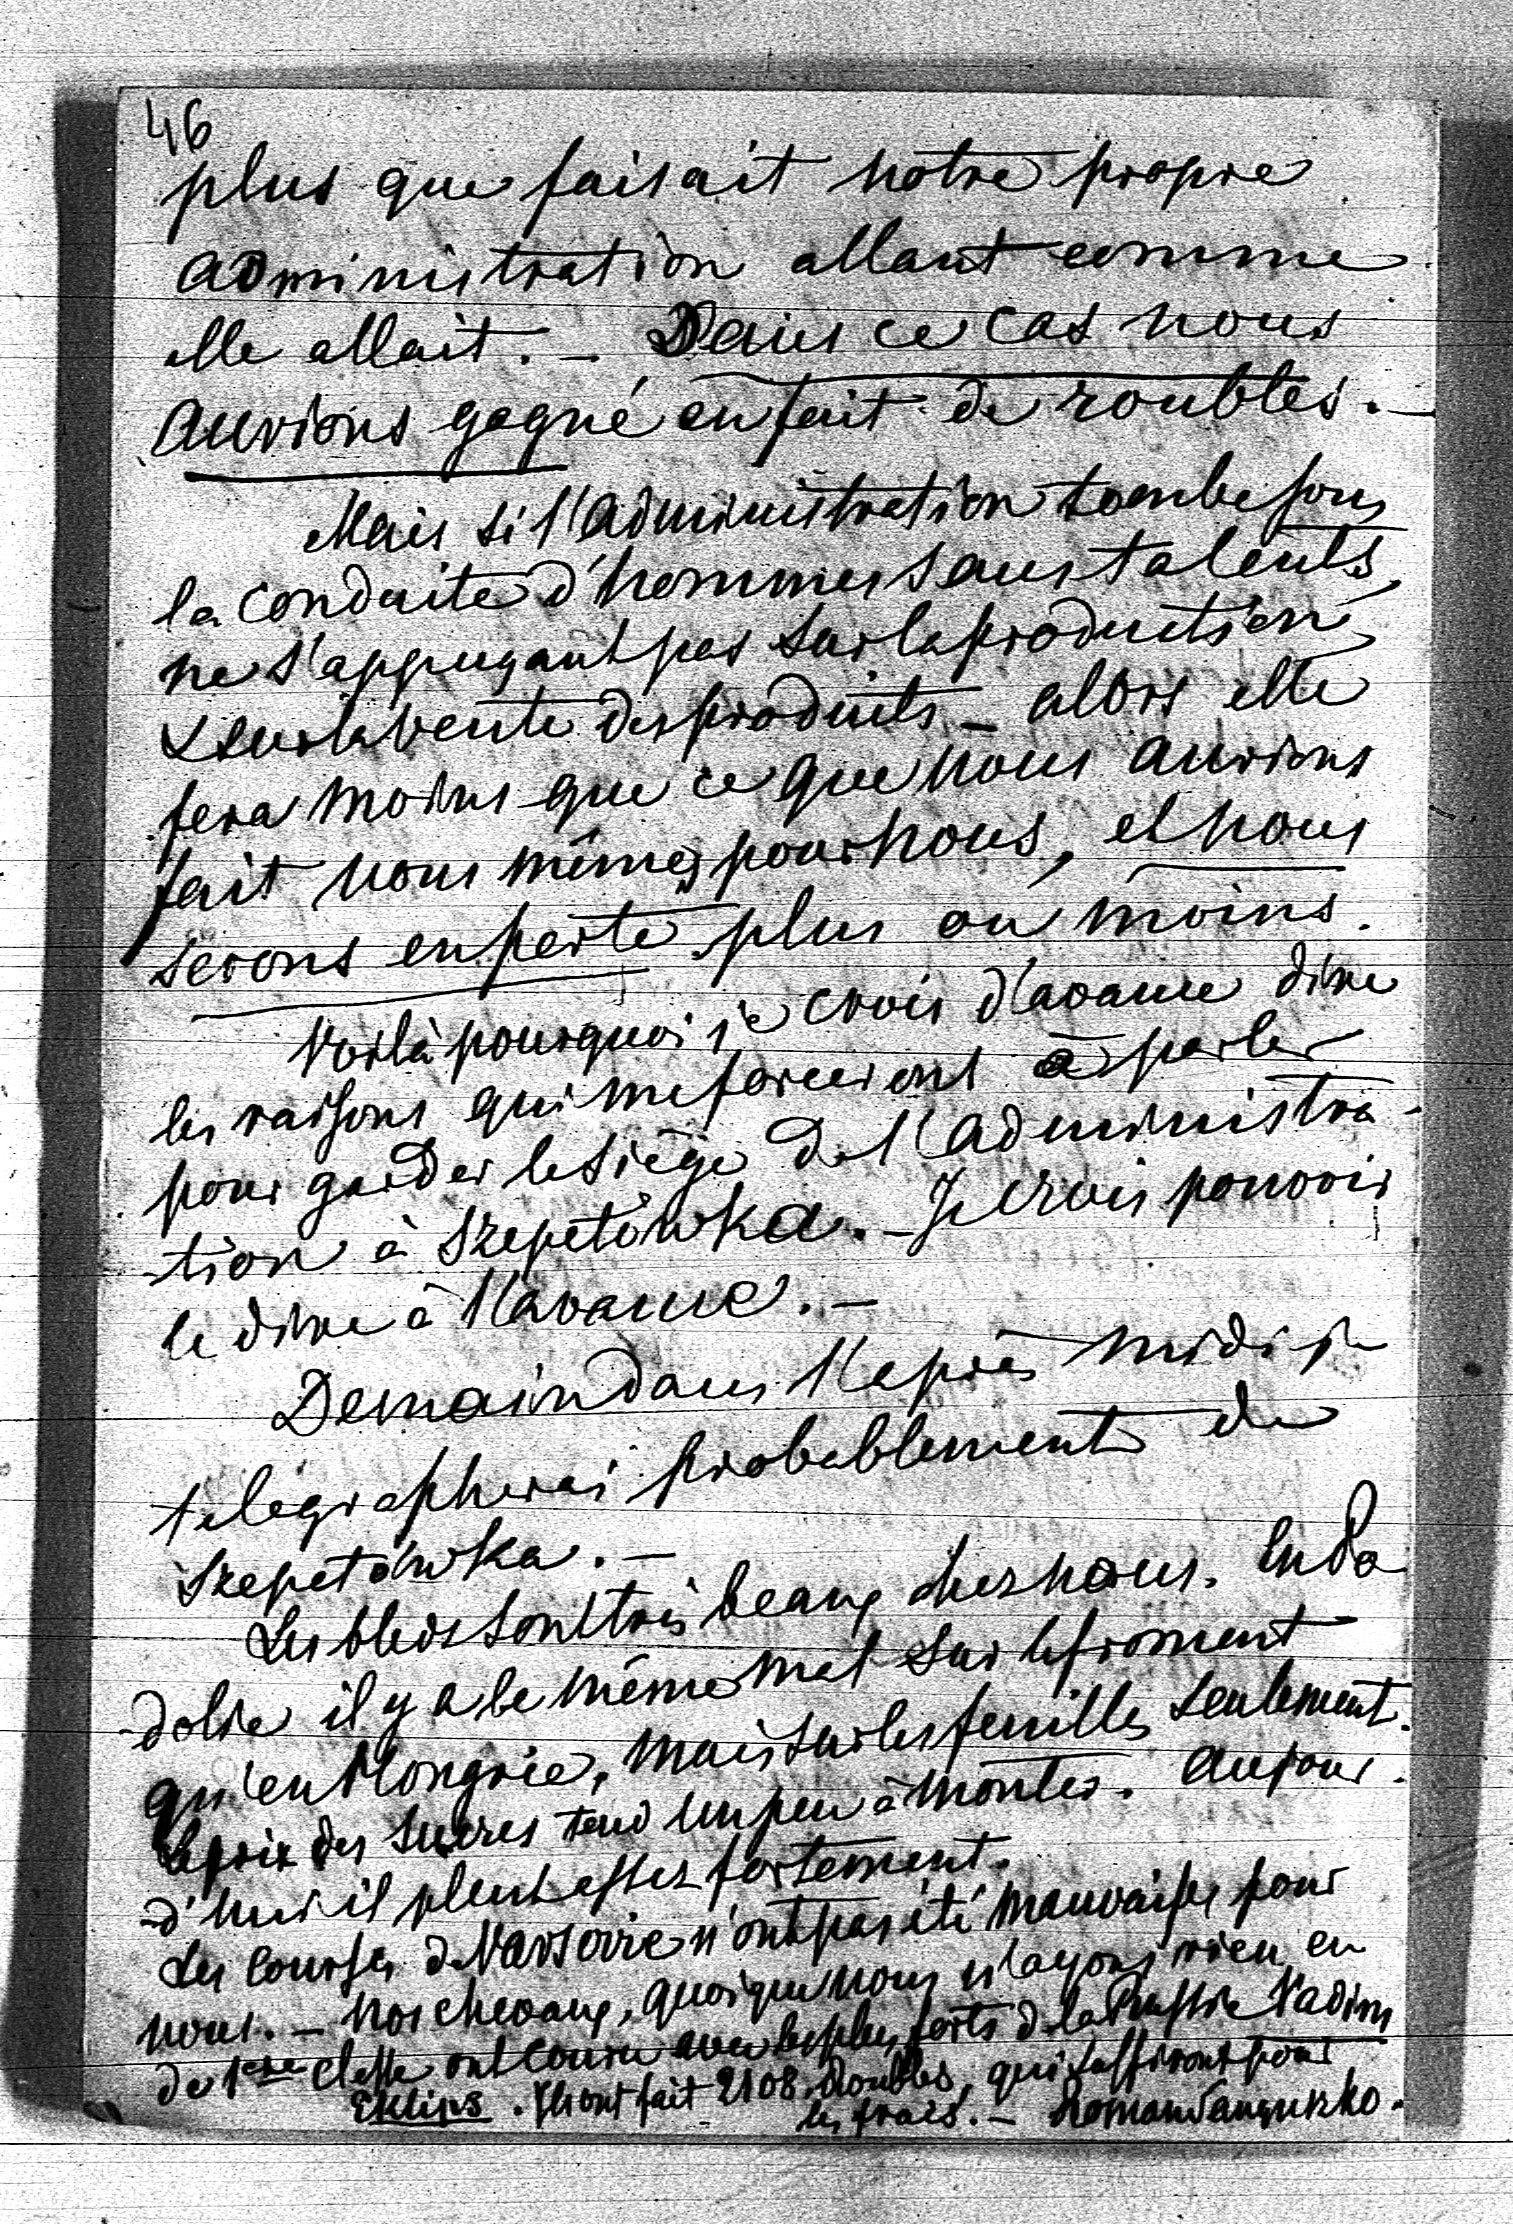 46
plus que faisait notre propre
administration allant comme
elle allait. – Dans ce cas nous
aurions gagné en fait de roubles. –
Mais si l'administration tombe sous
la conduite d'hommes sans talents,
ne s'appuyant pas sur la production
& sur la vente des produits – alors elle
fera moins que ce que nous aurions
fait nous mêmes pour nous, et nous
serons en perte plus ou moins.
Voilà pourquoi je crois d'avance dire
les raisons qui me forceront à parler
pour garder le siège de l'administra-
-tion à Szepetówka. – Je crois pouvoir
le dire à l'avance. –
Demain dans l'après midi je
télégrapherai probablement de
Szepetówka. –
Les bleds sont très beaux chez nous. En Po
-dolie il y a le même mal sur le froment
qu'en Hongrie, mais sur les feuilles seulement.
Le prix des sucres tend un peu à monter. Aujour-
-d'hui il pleut assez fortement.
Les courses de Varsovie n'ont pas été mauvaises pour
nous. – Nos chevaux, quoique nous n'ayons rien en
de 1ère classe ont couru avec les plus forts de la Russie Vadim
Eklips. Ils ont fait 2108 Roubles, qui suffiront pour
les frais. – Roman Sanguszko.